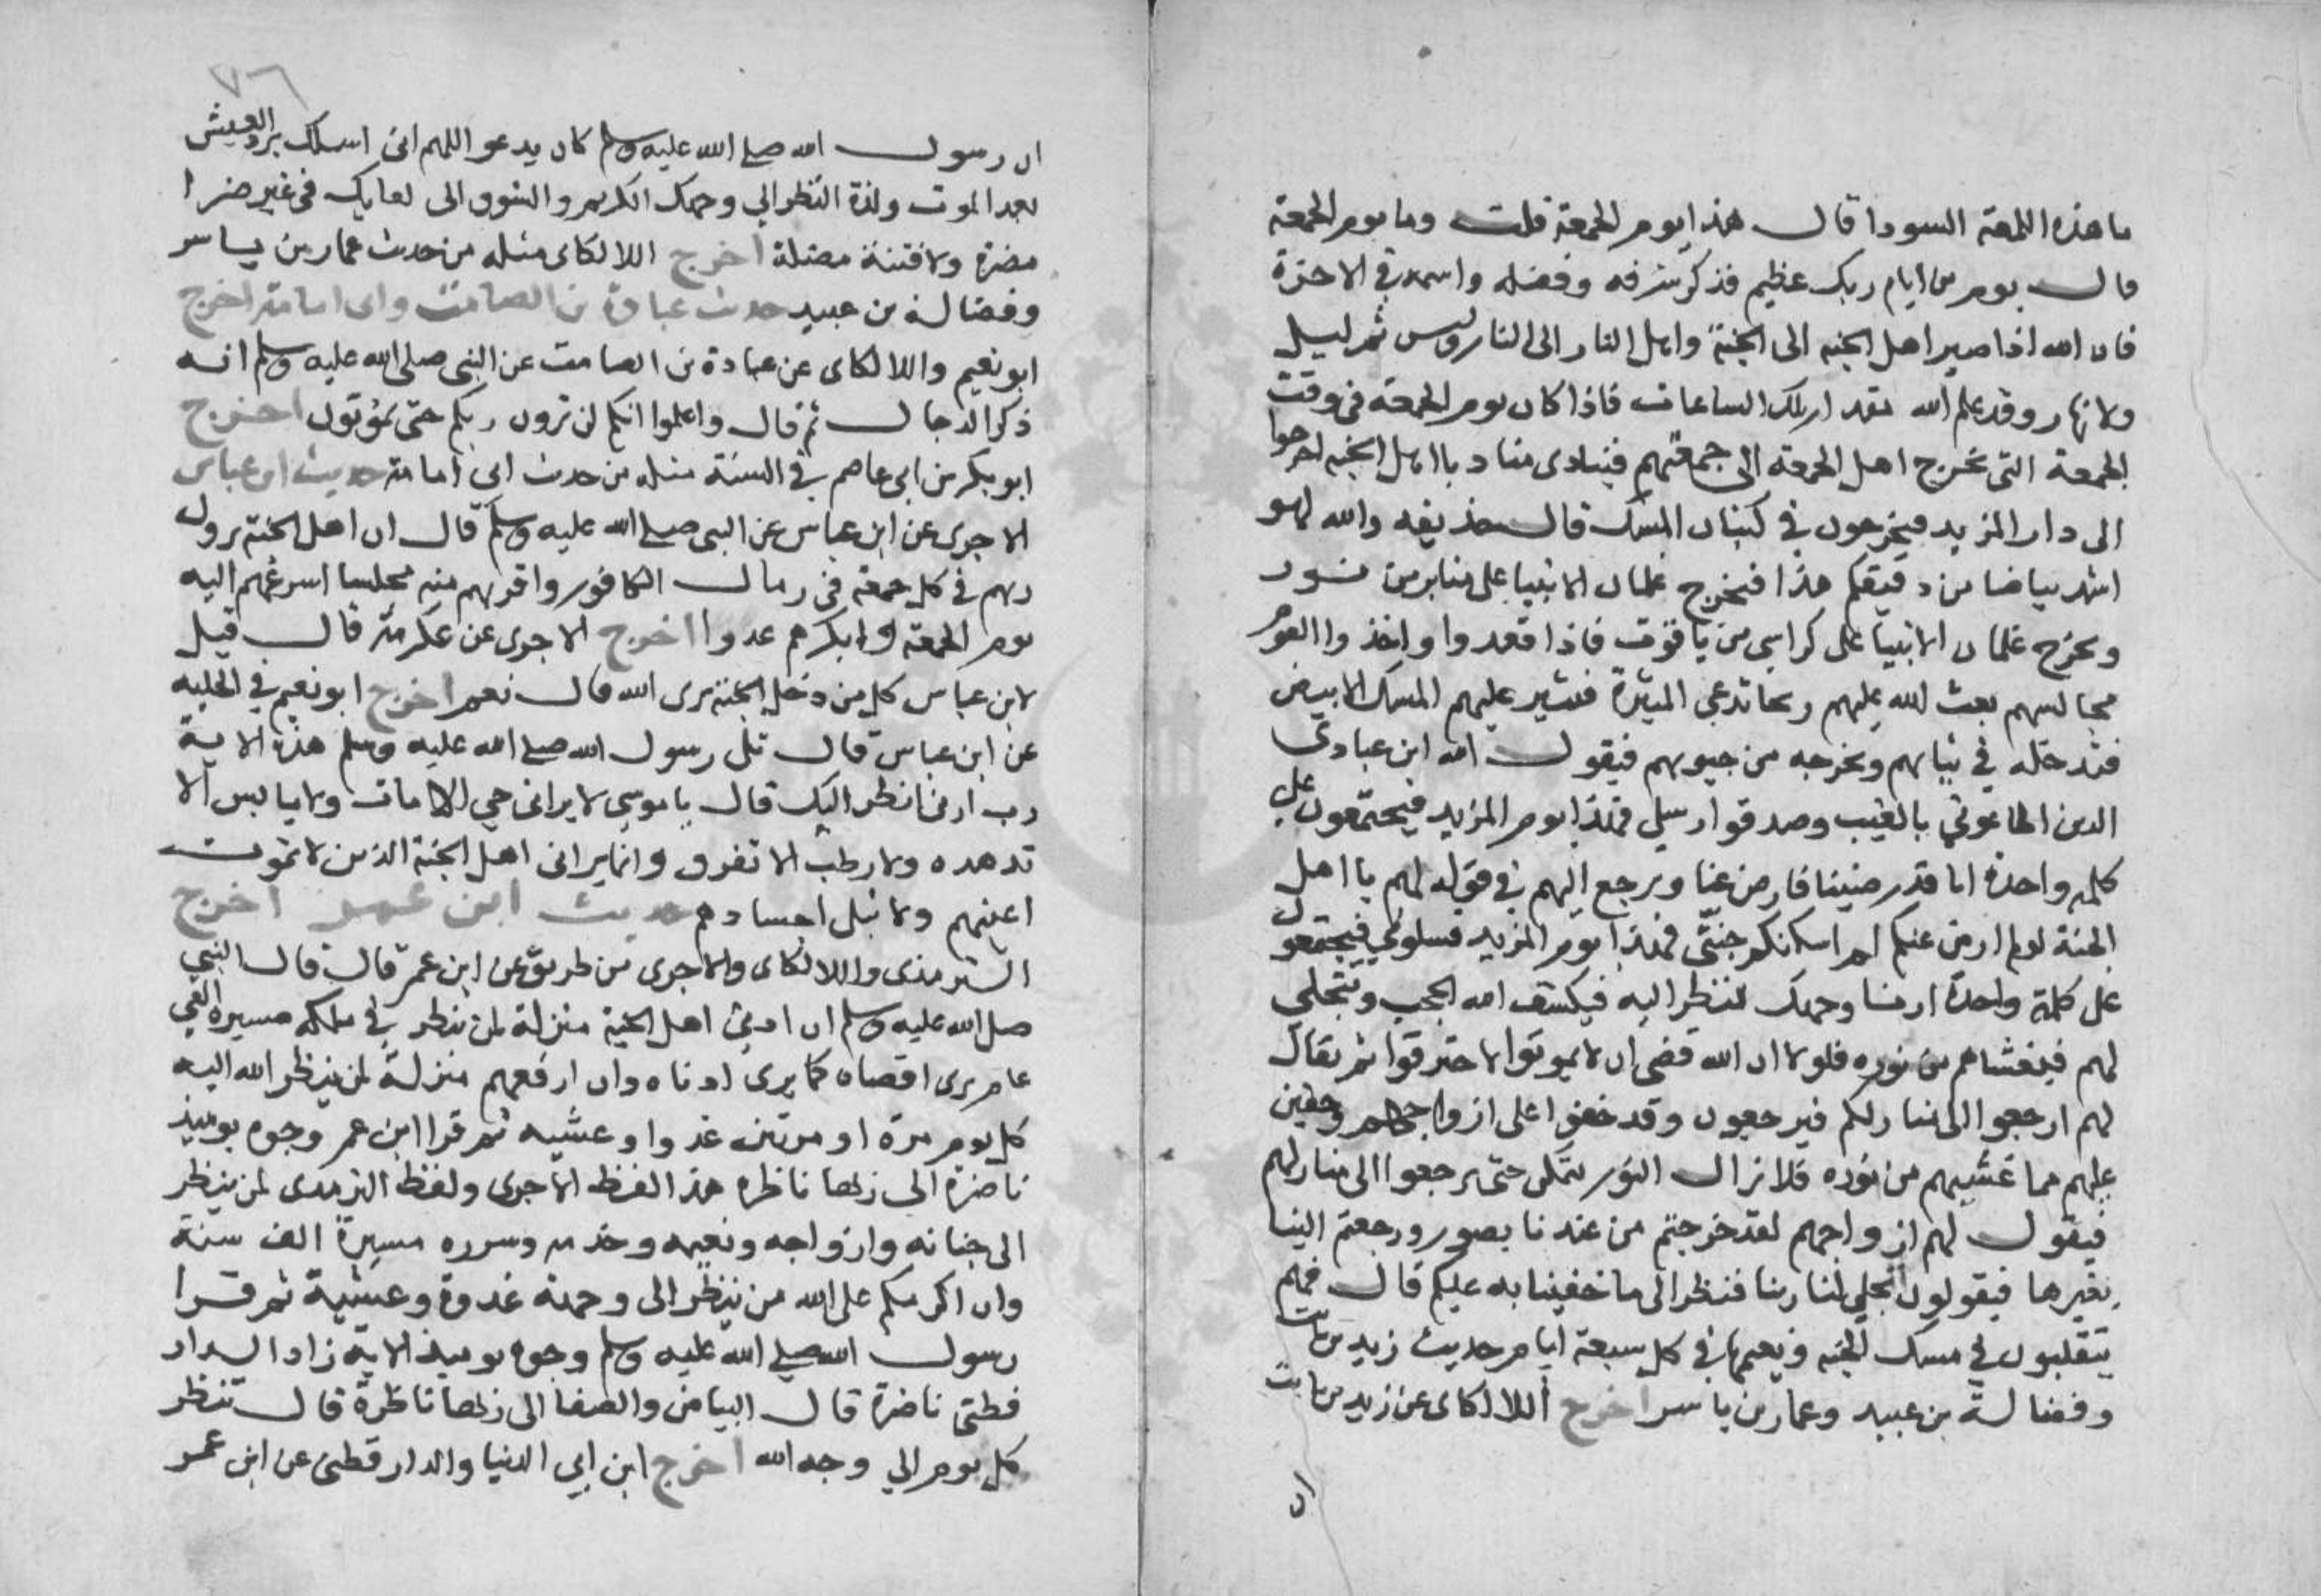 ما هذه اللمعة السودا قال هذا يوم الجمعة قلت وما يوم الجمعة
قال يوم من ايام ربك عظيم فذكر شرفه وفضله واسمه في الاخرة
فان الله اذا صير اهل الجنه الى الجنة واهل النار الى النار وليس ثم ليل
ولا نهار وقد علم الله مقدار تلك الساعات فاذا كان يوم الجمعة في وقت
الجمعة التي يخرج اهل الجمعة الى جمعتهم فينادي مناد يا اهل الجنه اخرجوا
الى دار المزيد فيخرجون في كثبان المسك قال حذيفه والله لهو
اشد بياضا من دقيقكم هذا فيخرج غلمان الانبيا على منابر من نور
ويخرج غلمان الانبيا على كراسي من ياقوت فاذا قعدوا واخذوا القوم
مجالسهم بعث الله عليهم ريحا تدعى المثيرة فتثير عليهم المسك الابيض
فتدخله في ثيابهم وتخرجه من جيوبهم فيقول الله اين عبادي
الذين اطاعوني بالغيب وصدقوا رسلي فهذا يوم المزيد فيجتمعون على
كلمة واحدة انا قد رضينا فارض عنا ويرجع اليهم في قوله لهم يا اهل
الجنة لو لم ارض عنكم لم اسكنكم جنتي فهذا يوم المزيد فسلوني فيجتمعون
على كلمة واحدة ارنا وجهك ننظر اليه فيكشف الله الحجب ويتجلى
لهم فيغشاهم من نوره فلولا ان الله قضى ان لا يموتوا لاحترقوا ثم يقال
لهم ارجعوا الى منازلكم فيرجعون وقد خفوا على ازواجهم وخفين
عليهم مما غشيهم من نوره فلا يزال النور يتمكن حتى يرجعوا الى منازلهم
فيقول لهم ازواجهم لقد خرجتم من عندنا بصور ورجعتم الينا
بغيرها فيقولون تجلى لنا ربنا فنظرنا الى ما خفينا به عليكم قال فهم
يتقلبون في مسك الجنه ونعيمها في كل سبعة ايام حديث زيد بن ثابت
وفضالة بن عبيد وعمار بن ياسر اخرج اللالكاى عن زيد بن ثابت
ان
٧٦
ان رسول الله صلى الله عليه وسلم كان يدعو اللهم اني اسلك برد العيش
بعد الموت ولذة النظر الي وجهك الكريم والشوق الى لقايك في غير ضرا
مضرة ولا فتنة مضلة اخرج اللالكاى مثله من حديث عمار بن ياسر
وفضالة بن عبيد حديث عبادة بن الصامت وابى امامة اخرج
ابو نعيم واللالكاى عن عبادة بن الصامت عن النبي صلى الله عليه وسلم انه
ذكر الدجال ثم قال واعلموا انكم لن ترون ربكم حتى تموتون اخرج
ابو بكر بن ابي عاصم في السنة مثله من حديث ابى امامة حديث ابن عباس
الاجرى عن ابن عباس عن النبي صلى الله عليه وسلم قال ان اهل الجنة يرون
ربهم في كل جمعة في رمال الكافور واقربهم منه مجلسا اسرعهم اليه
يوم الجمعة وابكرهم غدوا اخرج الاجرى عن عكرمة قال قيل
لابن عباس كل من دخل الجنة يرى الله قال نعم اخرج ابو نعيم في الحليه
عن ابن عباس قال تلى رسول الله صلى الله عليه وسلم هذه الاية
رب ارني انظر اليك قال يا موسى لا يراني حي الا مات ولا يابس الا
تدهده ولا رطب الا تفرق وانما يراني اهل الجنة الذين لا تموت
اعينهم ولا تبلى اجسادهم حديث ابن عمر اخرج
الترمذى واللالكاى والاجرى من طريق عن ابن عمر قال قال النبي
صلى الله عليه وسلم ان ادنى اهل الجنة منزلة لمن ينظر في ملكه مسيرة الفي
عام يرى اقصاه كما يرى ادناه وان ارفعهم منزلة لمن ينظر الله اليه
كل يوم مرة او مرتين غدوا وعشيه ثم قرا ابن عمر وجوه يوميذ
ناضرة الى ربها ناظره هذا لفظ الاجرى ولفظ الترمدى لمن ينظر
الى جنانه وازواجه ونعيمه وخدمه وسرره مسيرة الف سنة
وان اكرمكم على الله من ينظر الى وجهه غدوة وعشية ثم قرا
رسول الله صلى الله عليه وسلم وجوه يوميذ الاية زاد الدار
قطنى ناضرة قال البياض والصفا الى ربها ناظرة قال تنظر
كل يوم الي وجه الله اخرج ابن ابي الدنيا والدار قطنى عن ابن عمر